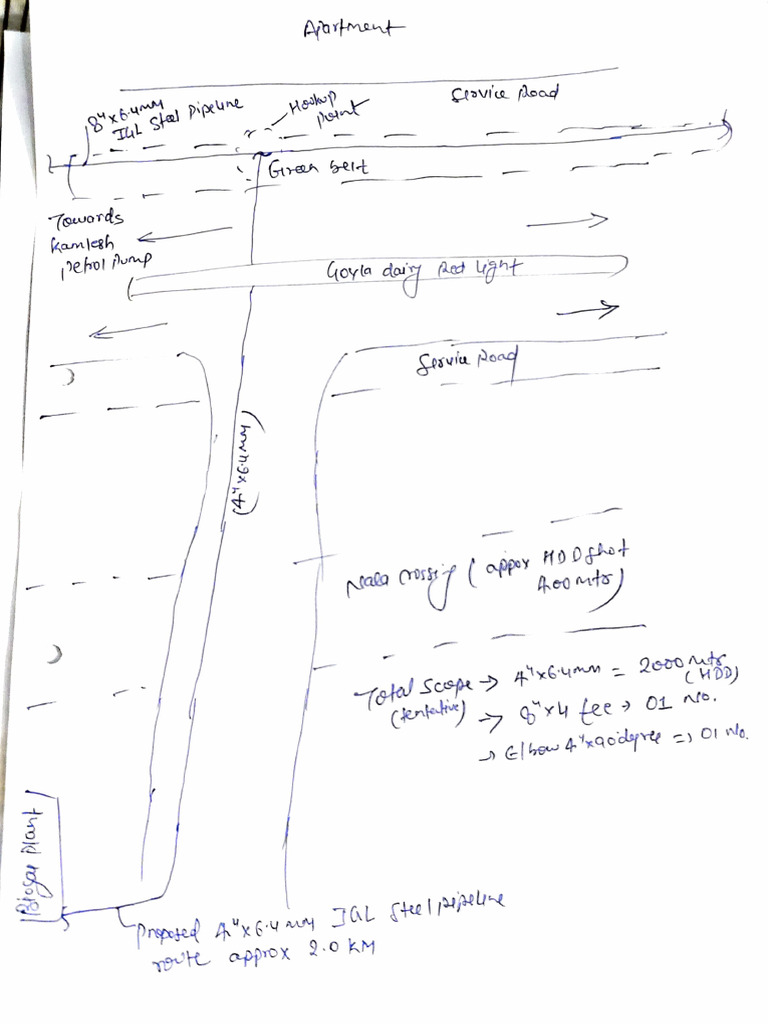 Apartment
Service Road
8"x6.4mm
IGL Steel Pipeline
Hookup
point
Green belt
Towards
Kamlesh
petrol pump
Goyla dairy Red light
Service Road
(4"x6.4mm)
Nala crossing (appox HDD shot
400 mtr)
Total Scope → 4"x6.4mm = 2000 mtr
(HDD)
(tentative) → 8"x4 tee → 01 No.
→ Elbow 4"x90 degree => 01 No.
Biogas Plant
Proposed 4"x6.4mm IGL Steel pipeline
route approx 2.0 KM